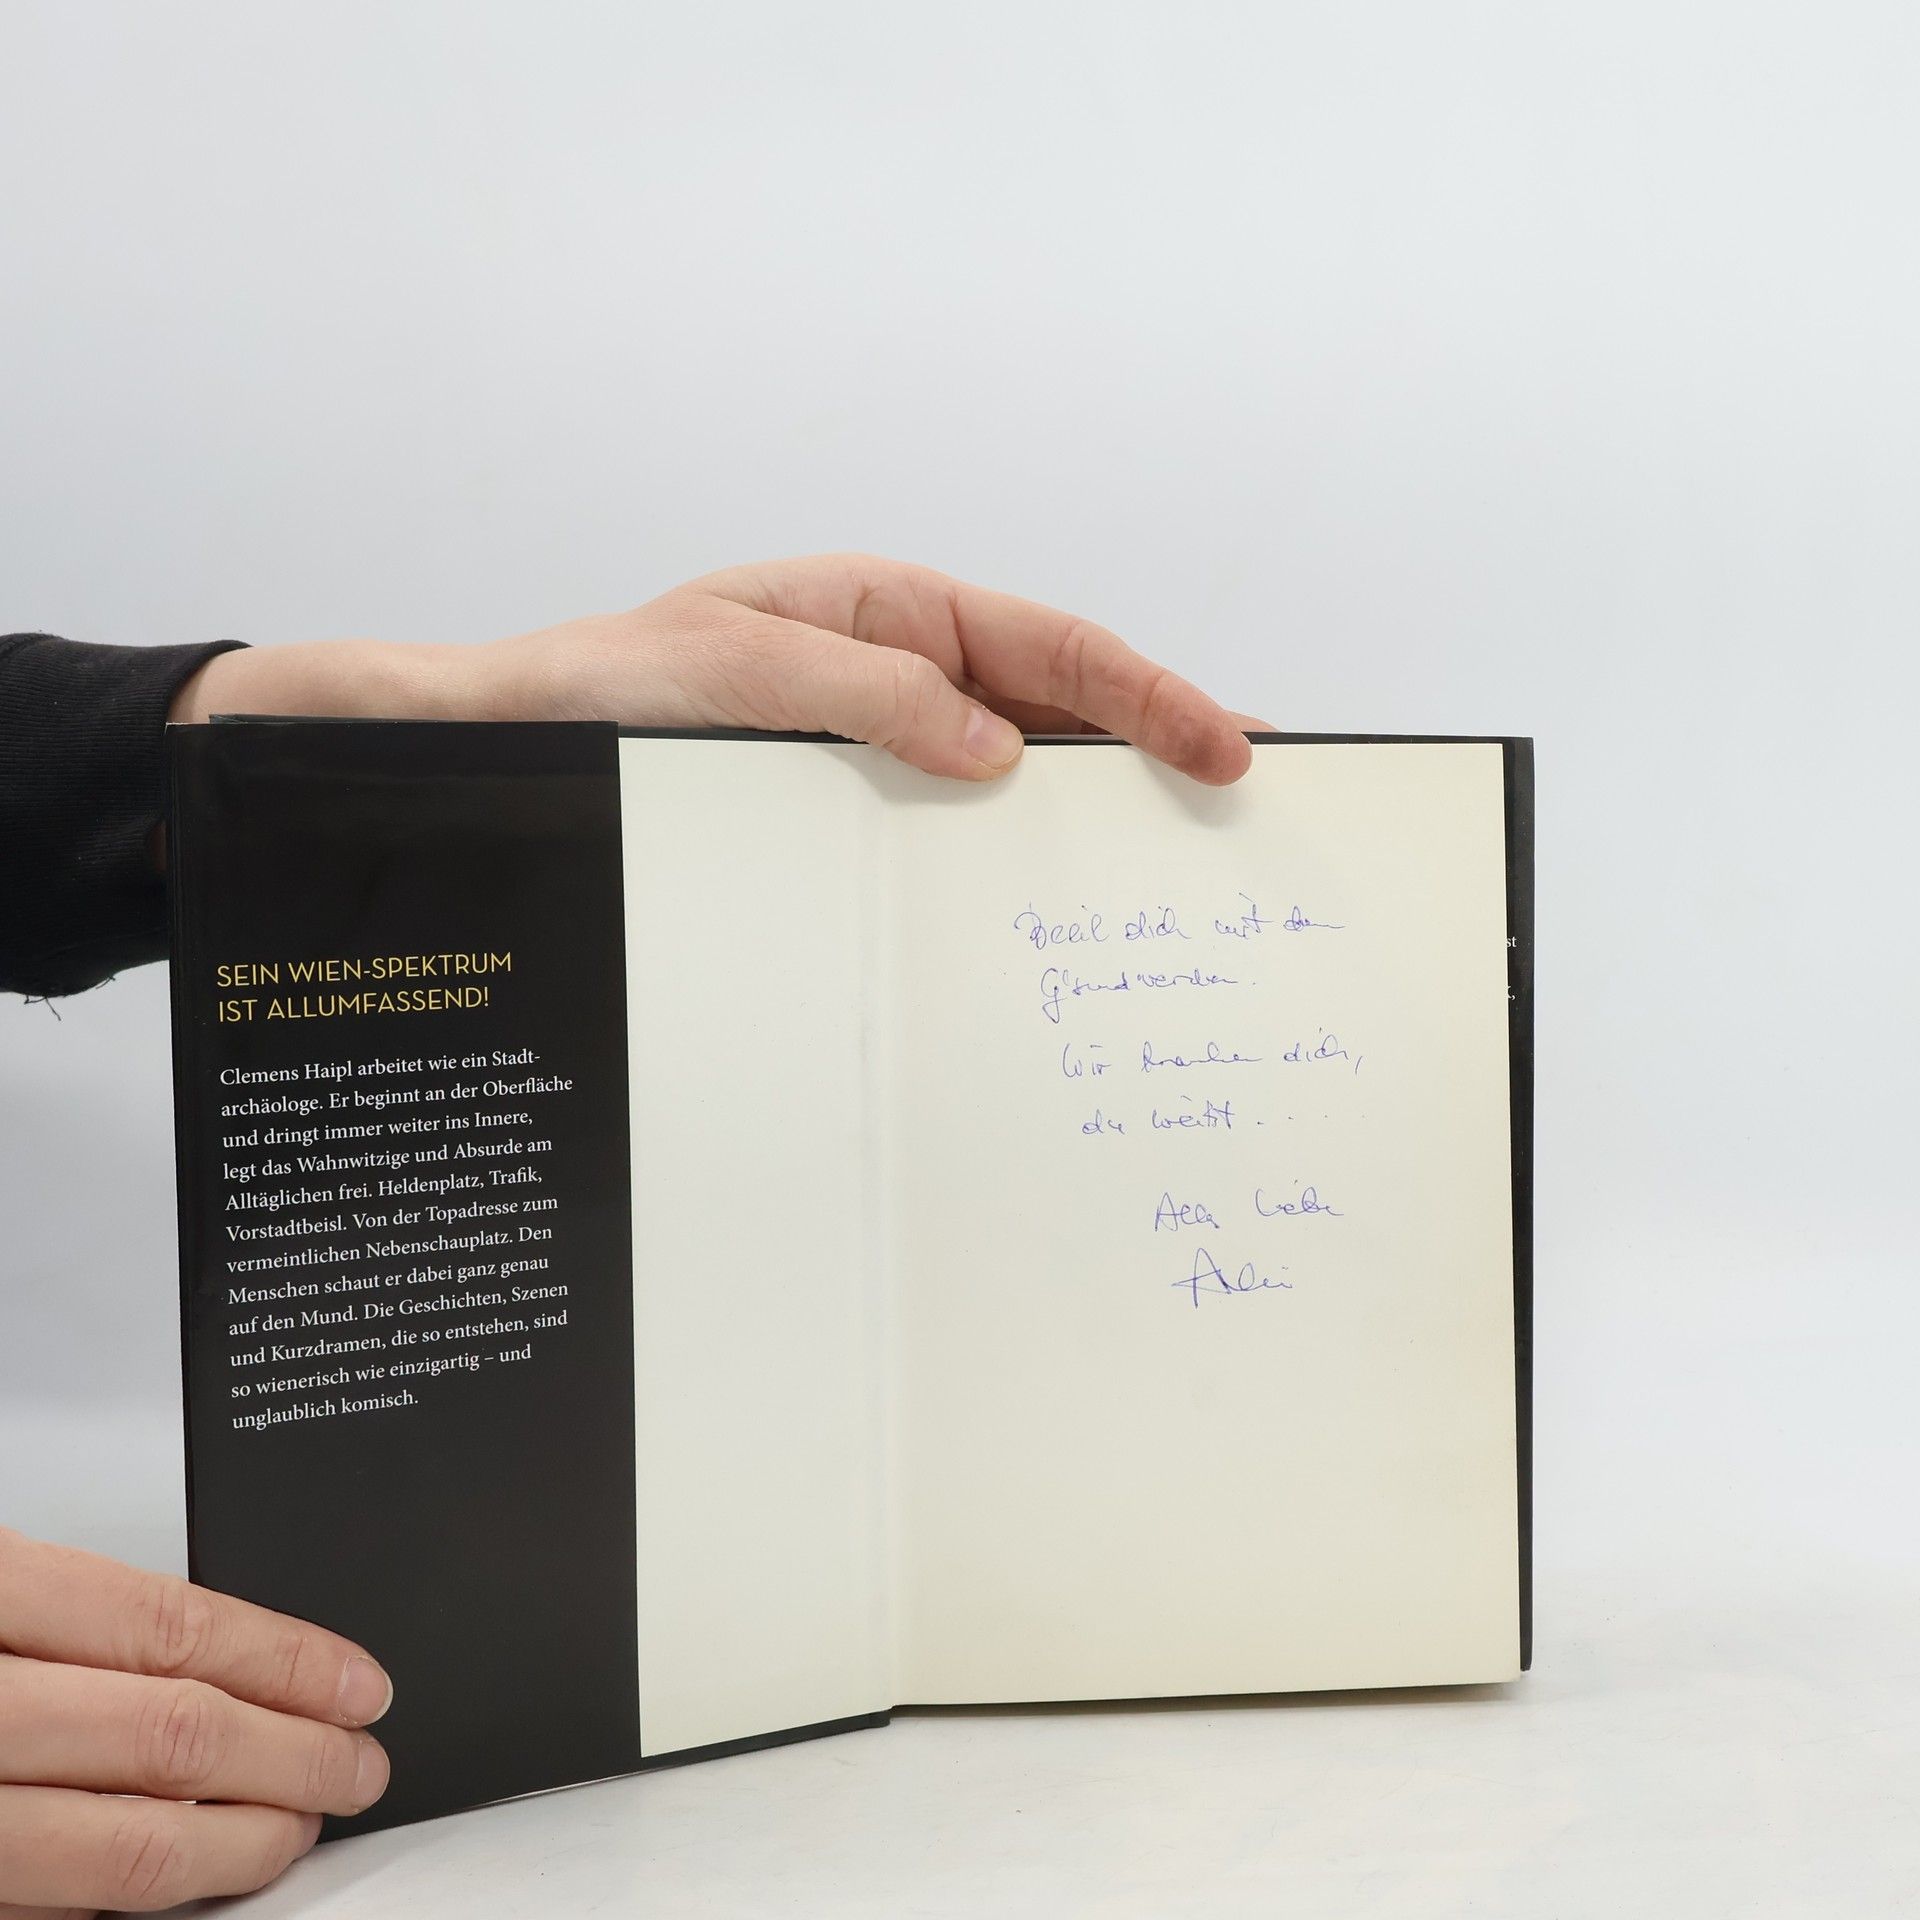 SEIN WIEN-SPEKTRUM
IST ALLUMFASSEND!
Clemens Haipl arbeitet wie ein Stadt-
archäologe. Er beginnt an der Oberfläche
und dringt immer weiter ins Innere,
legt das Wahnwitzige und Absurde am
Alltäglichen frei. Heldenplatz, Trafik,
Vorstadtbeisl. Von der Topadresse zum
vermeintlichen Nebenschauplatz. Den
Menschen schaut er dabei ganz genau
auf den Mund. Die Geschichten, Szenen
und Kurzdramen, die so entstehen, sind
so wienerisch wie einzigartig – und
unglaublich komisch.
Beeil dich mit dem
G'sundwerden.
Wir brauchen dich,
du weißt . . . .
Alles Liebe
st